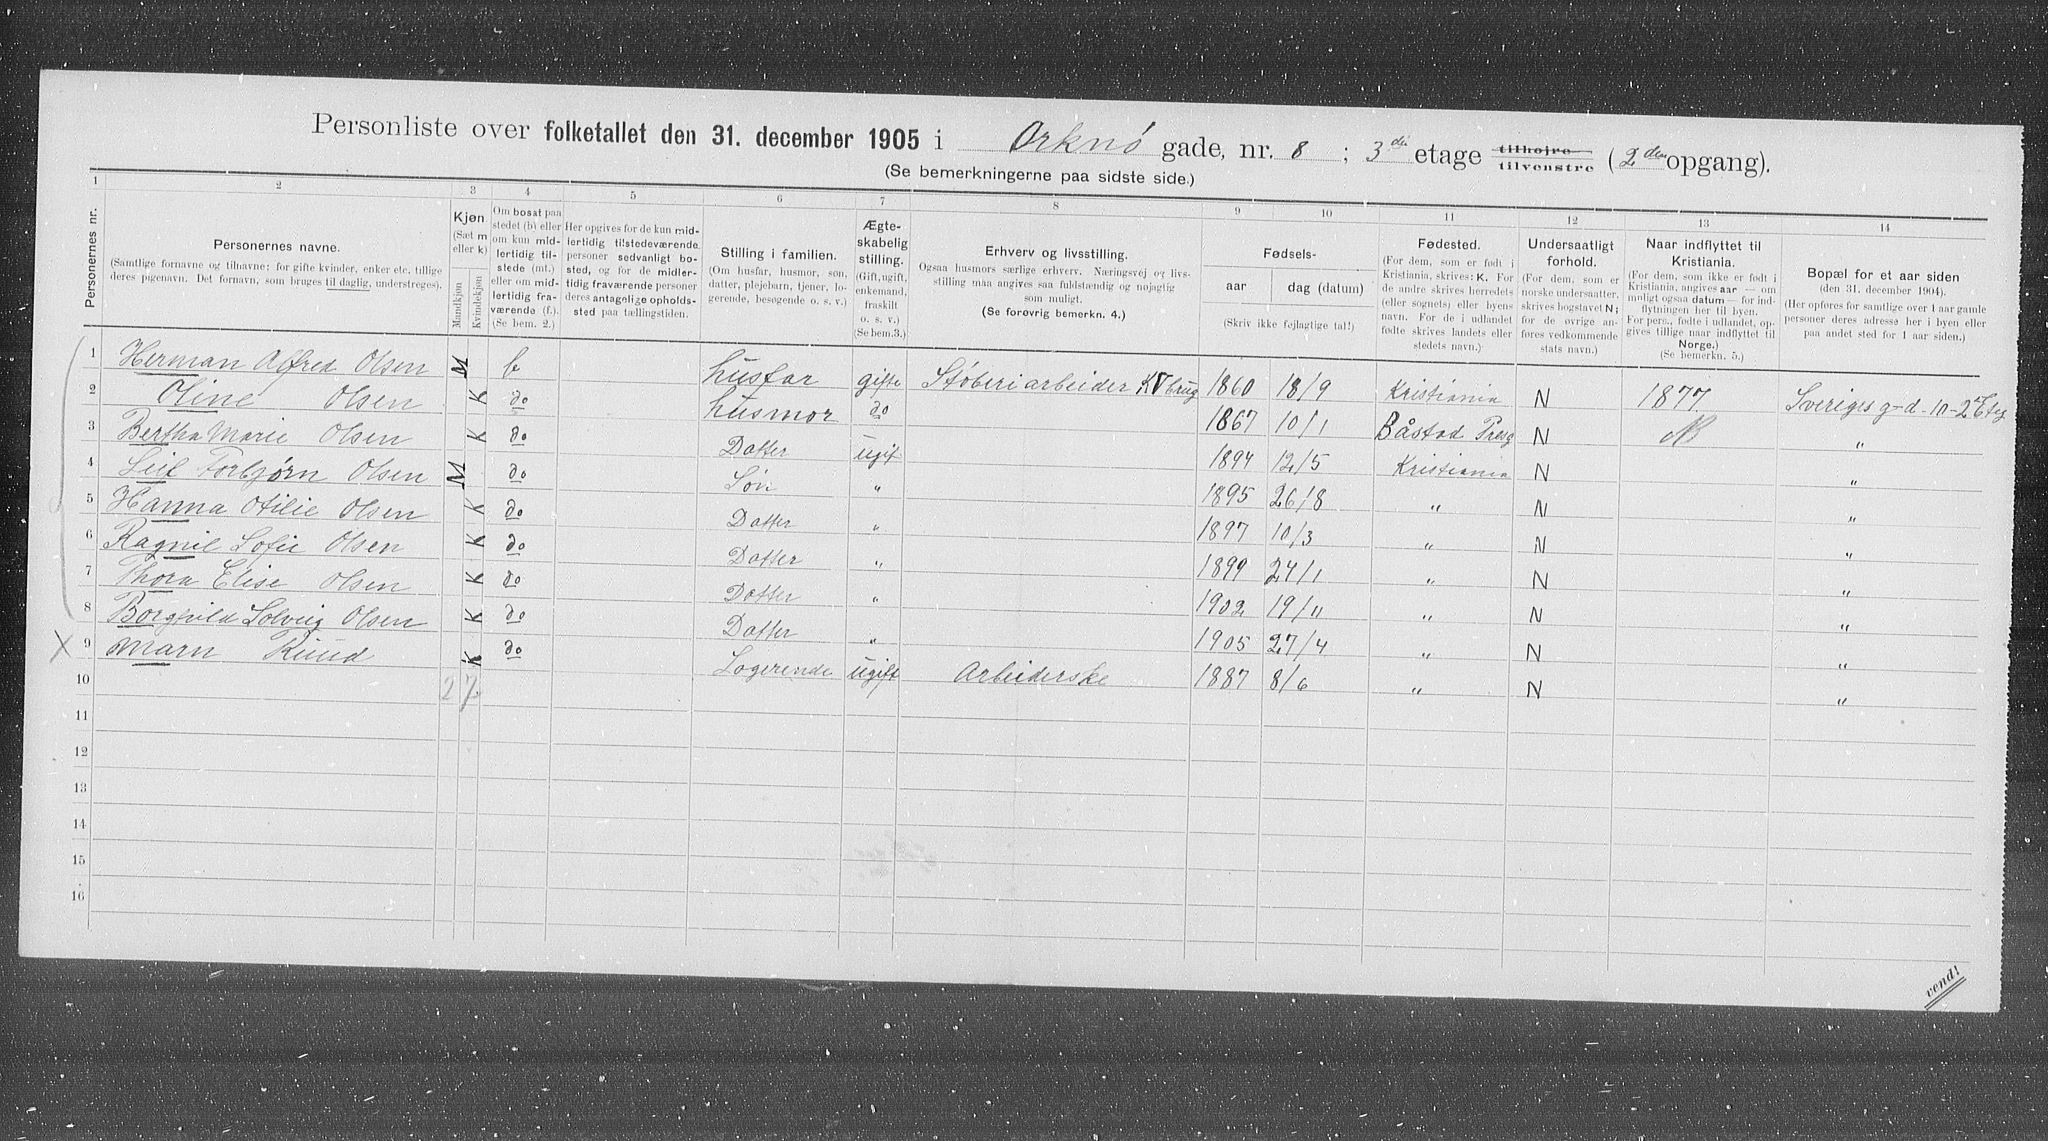 Personliste over folketallet den 31. december 1905 i Orknø gade, nr. 8 ; 3 die etage tilhøjre tilvenstre (2 den opgang).
(Se bemerkningerne paa sidste side.)
1 2 3 4 5 6 7 8 9 10 11 12 13 14
Personernes nr.
Personernes navne.
(Samtlige fornavne og tilnavne; for gifte kvinder, enker etc. tillige
deres pigenavn. Det fornavn, som bruges til daglig, understreges).
Kjøn.
(Sæt m
eller k)
Mandkjøn
Kvindekjøn
Om bosat paa
stedet (b) eller
om kun mid-
lertidig til-
stede (mt.)
eller om mid-
lertidig fra-
værende (f.).
(Se bem. 2.)
Her opgives for de kun mid-
lertidig tilstedeværende
personer sedvanlig bo-
sted, og for de midler-
tidig fraværende personer
deres antagelige opholds-
sted paa tællingstiden.
Stilling i familien.
(Om husfar, husmor, søn,
datter, plejebarn, tjener, lo-
gerende, besøgende o. s. v.)
Ægte-
skabelig
stilling.
(Gift, ugift,
enkemand,
fraskilt
o. s. v.)
(Se bem.3.)
Erhverv og livsstilling.
Ogsaa husmors særlige erhverv. Næringsvej og livs-
stilling maa angives saa fuldstændig og nøjagtig
som muligt.
(Se forøvrig bemerkn. 4.)
Fødsels-
aar
dag (datum)
(Skriv ikke fejlagtige tal!)
Fødested.
(For dem, som er født i
Kristiania, skrives: K. For
de andre skrives herredets
(eller sognets) eller byens
navn. For de i udlandet
fødte skrives landets eller
stedets navn.)
Undersaatligt
forhold.
(For dem, som er
norske undersaatter,
skrives bogstavet N;
for de øvrige an-
føres vedkommende
stats navn.)
Naar indflyttet til
Kristiania.
(For dem, som ikke er født i
Kristiania, angives aar — om
muligt ogsaa datum — for ind-
flytningen her til byen.
For pers., fødte i udlandet, op-
gives tillige naar indflyttet til
Norge.)
(Se bemerkn. 5.)
Bopæl for et aar siden
(den 31. december 1904).
(Her opføres for samtlige over 1 aar gamle
personer deres adresse her i byen eller
paa andet sted for 1 aar siden.)
1 Herman Alfred Olsen M b husfar gifte Støberiarbeider K V brug 1860 18/9 Kristiania N 1877 Sveriges g-d. 10-2 Etg
2 Oline Olsen K do husmor do 1867 10/1 Båstad Presg N "
3 Bertha Marie Olsen K do Datter ugift 1894 12/5 Kristiania N "
4 Leif Torbjørn Olsen M do Søn " 1895 26/8 " N "
5 Hanna Otilie Olsen K do Datter " 1897 10/3 " N "
6 Ragnil Sofie Olsen K do Datter " 1899 24/1 " N "
7 Thora Elise Olsen K do Datter " 1902 19/11 " N "
8 Borghild Solveig Olsen K do Datter " 1905 27/4 " N "
X 9 Marn Ruud K do Logerende ugift Arbeiderske 1887 8/6 " N "
10 2 7
11
12
13
14
15
16
vend!